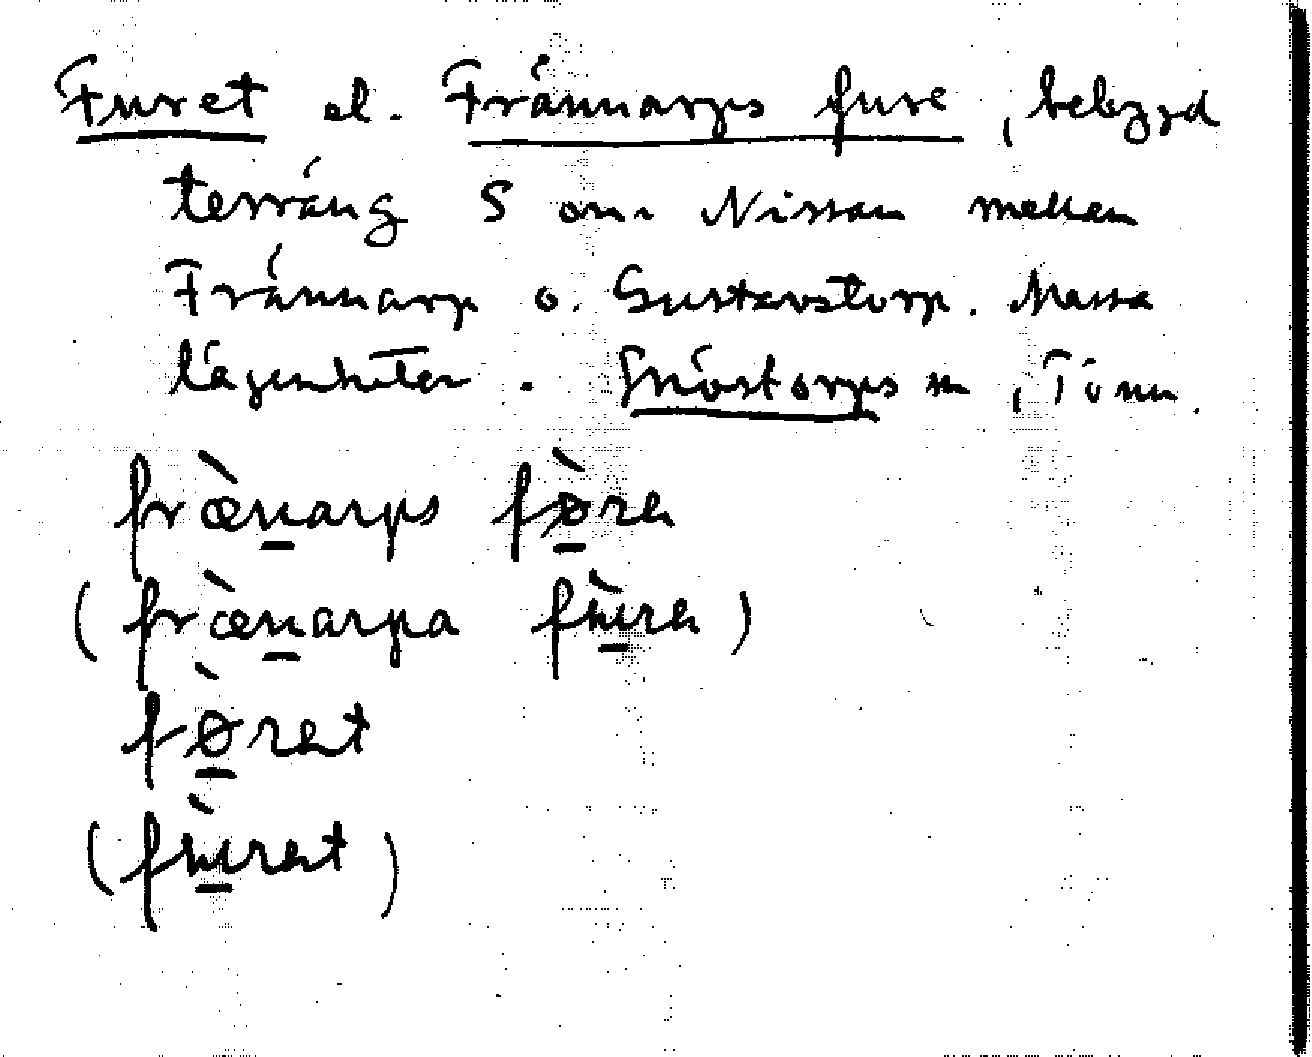 Furet el. Frännarps fure, bebyggd
terräng S om Nissan mellan
Frännarp o. Gustavstorp. Massa
lägenheter. Snöstorps sn, Tönn.
fræ̀n̲arps fø̲̀ra
(fræ̀n̲arpa fù̲ra)
fø̲̀rat
(fù̲rat)